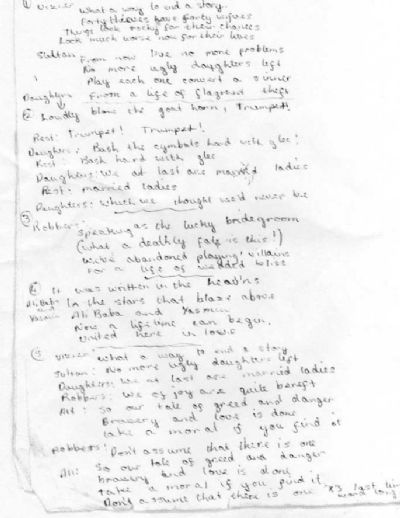 ① Vizier: What a way to end a story.
Forty thieves have forty wives
Things look rocky for their chances
Look much worse now for their lives
Sultan: From now I've no more problems
No more ugly daughters left
Play each one convert a sinner
Daughters From a life of flagrant theft
② Loudly blow the goat horn, Trumpet!
Rest: Trumpet! Trumpet!
Daughters: Bash the cymbals hard with glee!
Rest: Bash hard with glee
Daughters: We at last are married ladies
Rest: married ladies
Daughters: Which we thought we'd never be
③ Robbers: Speaking as the lucky bridegroom
(What a deathly fate is this!)
We've abandoned playing villains
For a life of wedded bliss
④ It was written in the heav'ns
Ali Baba In the stars that blaze above
and Yasmin Ali Baba and Yasmin
Now a lifetime can begin.
United here in love
⑤ Vizier: What a way to end a story
Sultan: No more ugly daughters left
Daughters: We at last are married ladies
Robbers: We of joy are quite bereft
All: So our tale of greed and danger
Bravery and love is done
Take a moral if you find it
Robbers: Don't assume that there is one
All: So our tale of greed and danger
bravery and love is done
Take a moral if you find it
Don't assume that there is one x3 last line
word long